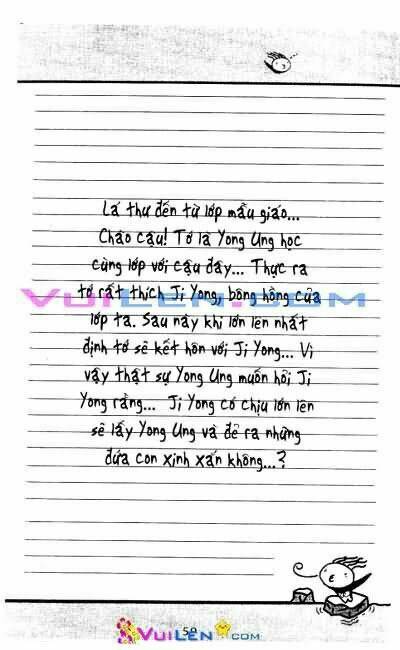 Lá thư đến từ lớp mẫu giáo...
Chào cậu! Tớ là Yong Ung học
cùng lớp với cậu đây... Thực ra
tớ rất thích Ji Yong, bông hồng của
lớp ta. Sau này khi lớn lên nhất
định tớ sẽ kết hôn với Ji Yong... Vì
vậy thật sự Yong Ung muốn hỏi Ji
Yong rằng... Ji Yong có chịu lớn lên
sẽ lấy Yong Ung và đẻ ra những
đứa con xinh xắn không...?
VUILEN.COM
59
VUILEN.COM